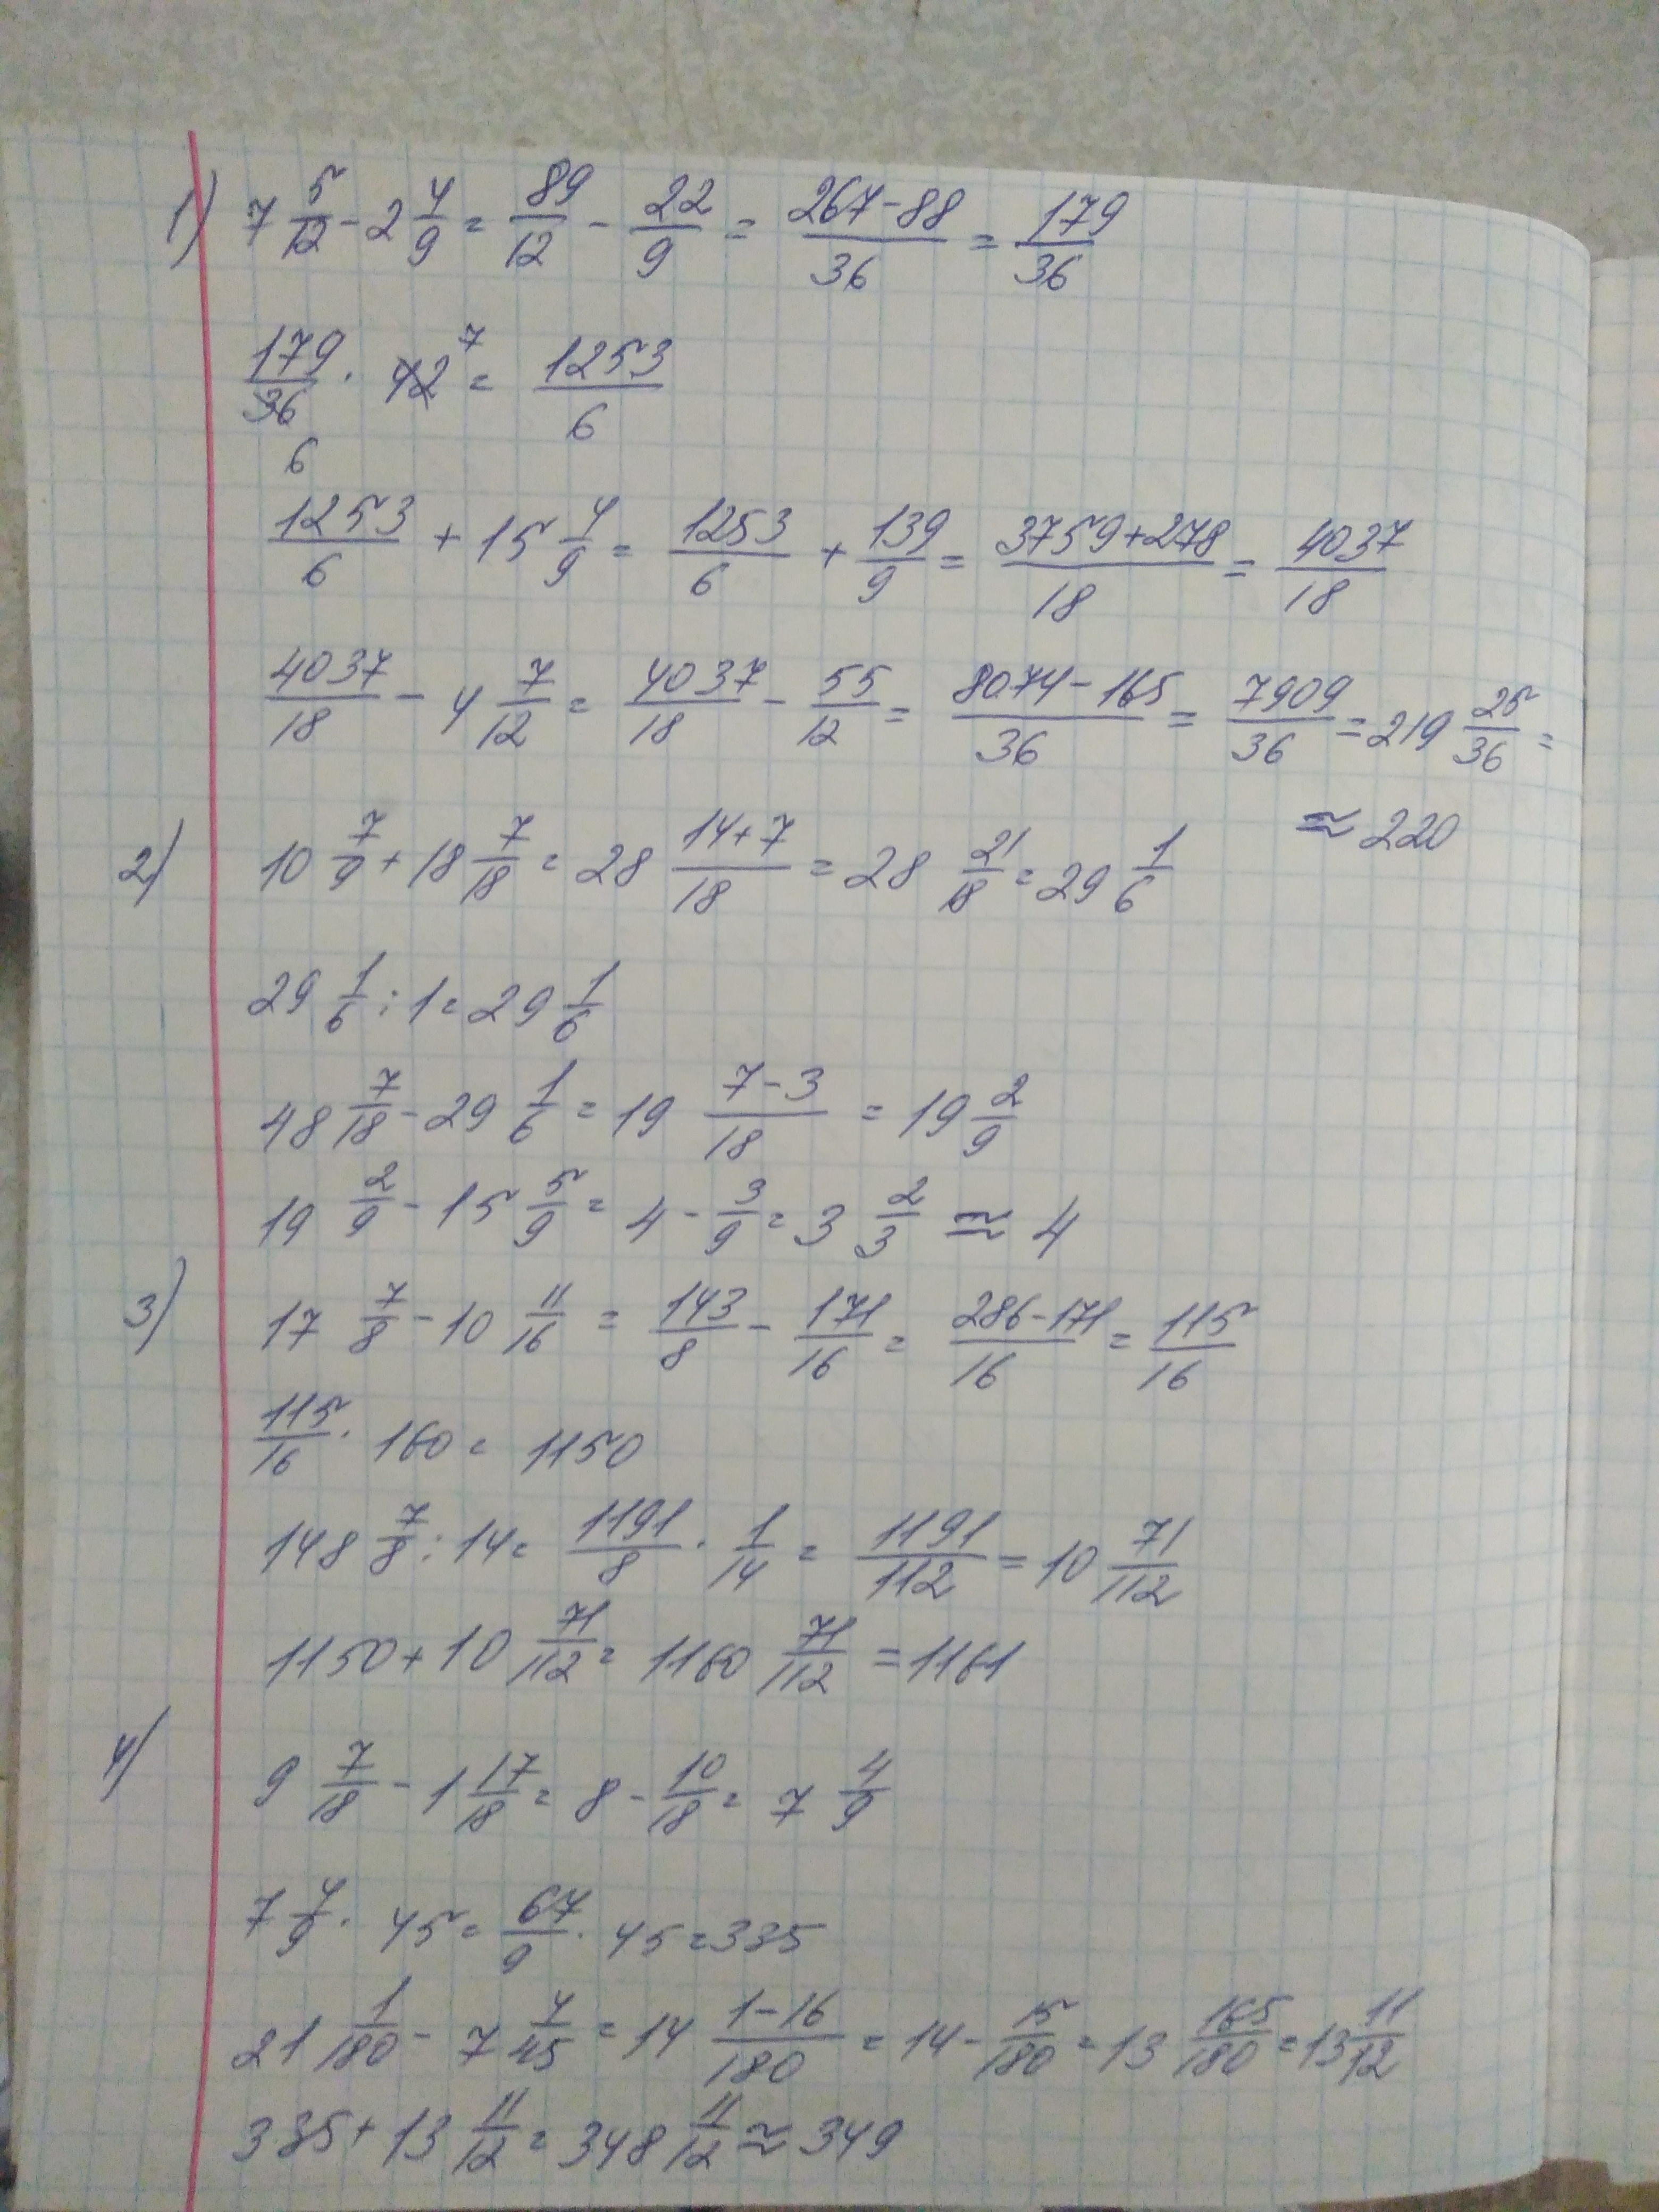 1) 7 5/12 - 2 4/9 = 89/12 - 22/9 = 267-88/36 = 179/36
179/36 · 42 = 1253/6
7
6
1253/6 + 15 4/9 = 1253/6 + 139/9 = 3759+278/18 = 4037/18
4037/18 - 4 7/12 = 4037/18 - 55/12 = 8074-165/36 = 7909/36 = 219 25/36 =
≈ 220
2) 10 7/9 + 18 7/18 = 28 14+7/18 = 28 21/18 = 29 1/6
29 1/6 : 1 = 29 1/6
48 7/18 - 29 1/6 = 19 7-3/18 = 19 2/9
19 2/9 - 15 5/9 = 4 - 3/9 = 3 2/3 ≈ 4
3) 17 7/8 - 10 11/16 = 143/8 - 171/16 = 286-171/16 = 115/16
115/16 · 160 = 1150
148 7/8 : 14 = 1191/8 · 1/14 = 1191/112 = 10 71/112
1150 + 10 71/112 = 1160 71/112 = 1161
4) 9 7/18 - 1 17/18 = 8 - 10/18 = 7 4/9
7 4/9 · 45 = 67/9 · 45 = 335
21 1/180 - 7 4/45 = 14 1-16/180 = 14 - 15/180 = 13 165/180 = 13 11/12
335 + 13 11/12 = 348 11/12 ≈ 349